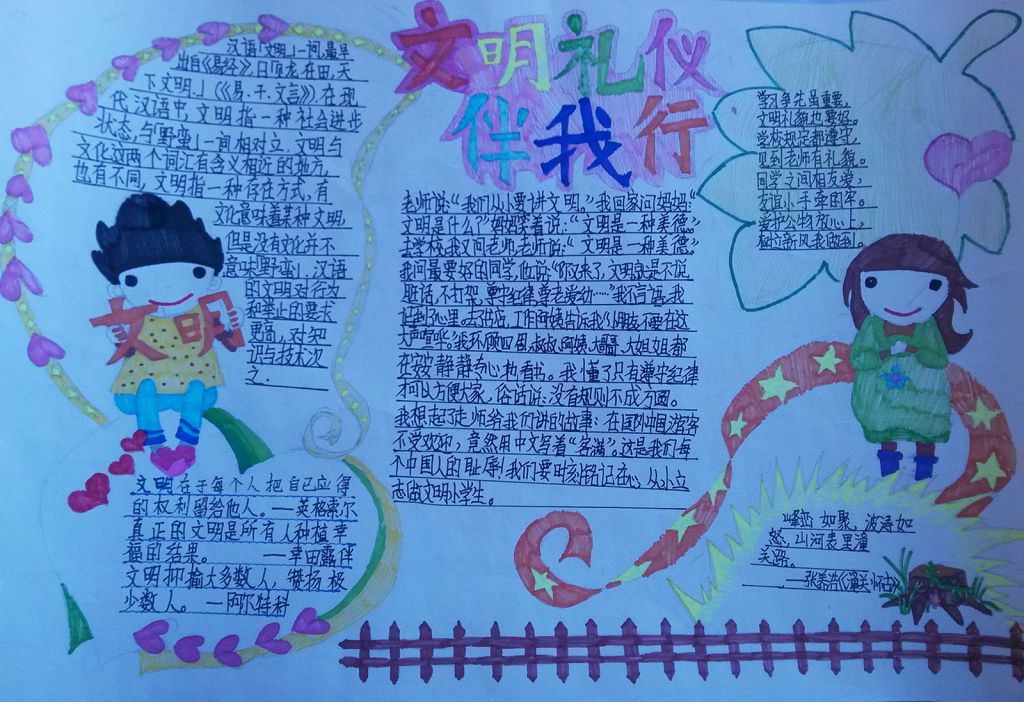 文明礼仪
伴我行
汉语「文明」一词,最早
出自《易经》,曰「见龙在田,天
下文明。」(《易·乾·文言》).在现
代汉语中,文明指一种社会进步
状态,与「野蛮」一词相对立.文明与
文化这两个词汇有含义相近的地方,
也有不同,文明指一种存在方式,有
文化意味着某种文明,
但是没有文化并不
意味「野蛮」,汉语
的文明对行为
和举止的要求
更高,对知
识与技术次
之.
文明
老师说:“我们从小要讲文明。”我回家问妈妈:“
文明是什么?”妈妈笑着说:“文明是一种美德。”
去学校,我又问老师,老师说:“文明是一种美德。”
我问最要好的同学,他说:“你又来了,文明就是不说
脏话,不打架,遵守纪律,尊老爱幼……”我不言语,我
记到了心里。去书店,工作阿姨告诉我:“小朋友,不要在这
大声喧哗。”我环顾四周,叔叔、阿姨、大哥哥、大姐姐都
在安安静静专心地看书。我懂了只有遵守纪律
才可以方便大家。俗话说:没有规则不成方圆。
我想起了老师给我们讲的故事:在国外中国游客
不受欢迎,竟然用中文写着“客满”。这是我们每
个中国人的耻辱!我们要时刻铭记在心,从小立
志做文明小学生。
学习争先虽重要,
文明礼貌也要好。
学校规定都遵守,
见到老师有礼貌。
同学之间相友爱,
友谊小手牵的牢。
爱护公物放心上,
树立新风我做到。
文明在于每个人把自己应得
的权利留给他人。—英格索尔
真正的文明是所有人种植幸
福的结果。—幸田露伴
文明抑揄大多数人,赞扬极
少数人。—阿尔特科
峰峦如聚,波涛如
怒,山河表里潼
关路。
——张养浩《潼关怀古》